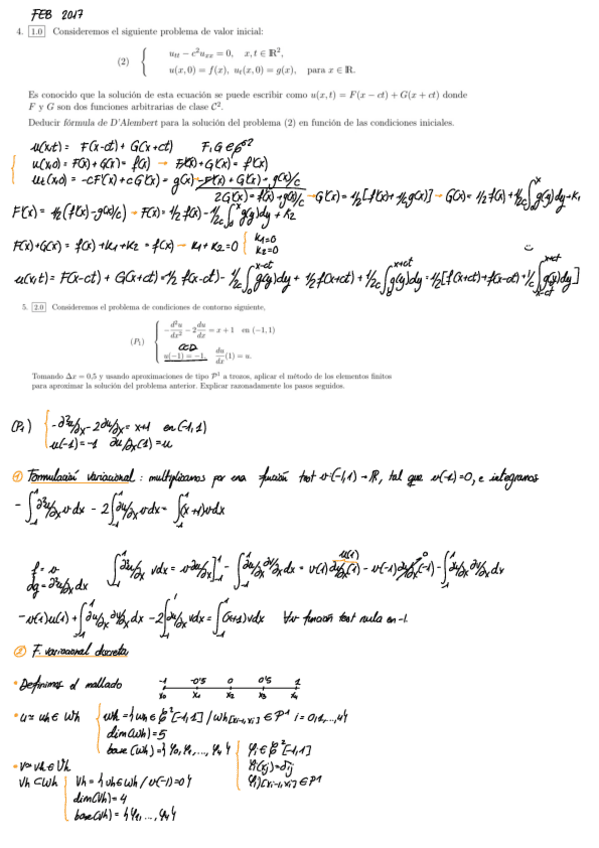 FEB 2017
4. 1.0 Consideremos el siguiente problema de valor inicial:
(2) { u_tt − c²u_xx = 0, x, t ∈ ℝ²,
u(x, 0) = f(x), u_t(x, 0) = g(x), para x ∈ ℝ.
Es conocido que la solución de esta ecuación se puede escribir como u(x, t) = F(x − ct) + G(x + ct) donde
F y G son dos funciones arbitrarias de clase C².
Deducir fórmula de D'Alembert para la solución del problema (2) en función de las condiciones iniciales.
u(x,t) = F(x-ct) + G(x+ct) F, G ∈ C²
u(x,0) = F(x) + G(x) = f(x) → F'(x) + G'(x) = f'(x)
u_t(x,0) = -cF'(x) + cG'(x) = g(x) → -F'(x) + G'(x) = g(x)/c
2G'(x) = f'(x) + g(x)/c → G'(x) = 1/2 [f'(x) + 1/c g(x)] → G(x) = 1/2 f(x) + 1/2c ∫₀ˣ g(y)dy + K₁
F'(x) = 1/2 (f'(x) - g(x)/c) → F(x) = 1/2 f(x) - 1/2c ∫₀ˣ g(y)dy + K₂
F(x) + G(x) = f(x) + K₁ + K₂ = f(x) → K₁ + K₂ = 0 { K₁=0
K₂=0
u(x,t) = F(x-ct) + G(x+ct) = 1/2 f(x-ct) - 1/2c ∫₀ˣ⁻ᶜᵗ g(y)dy + 1/2 f(x+ct) + 1/2c ∫₀ˣ⁺ᶜᵗ g(y)dy = 1/2 [f(x+ct) + f(x-ct) + 1/c ∫ₓ₋ctˣ⁺ᶜᵗ g(y)dy]
5. 2.0 Consideremos el problema de condiciones de contorno siguiente,
(P₁) { −d²u/dx² − 2 du/dx = x + 1 en (−1, 1)
CCD
u(−1) = −1, du/dx(1) = u.
Tomando Δx = 0,5 y usando aproximaciones de tipo ℙ¹ a trozos, aplicar el método de los elementos finitos
para aproximar la solución del problema anterior. Explicar razonadamente los pasos seguidos.
(P₁) { -∂²u/∂x² - 2∂u/∂x = x+1 en (-1,1)
u(-1) = -1 ∂u/∂x(1) = u
① Formulación variacional: multiplicamos por una función test v:(-1,1) → ℝ, tal que v(-1)=0, e integramos
-∫₋₁¹ ∂²u/∂x² v dx - 2∫₋₁¹ ∂u/∂x v dx = ∫₋₁¹ (x+1) v dx
f = v
dg = ∂²u/∂x² dx
∫₋₁¹ ∂²u/∂x² v dx = v ∂u/∂x ]₋₁¹ - ∫₋₁¹ ∂u/∂x ∂v/∂x dx = v(1) ∂u/∂x(1) - v(-1) ∂u/∂x(-1) - ∫₋₁¹ ∂u/∂x ∂v/∂x dx
u(1) 0
-v(1)u(1) + ∫₋₁¹ ∂u/∂x ∂v/∂x dx - 2∫₋₁¹ ∂u/∂x v dx = ∫₋₁¹ (x+1) v dx ∀v función test nula en -1.
② F. variacional discreta
• Definimos el mallado -1 -0'5 0 0'5 1
x₀ x₁ x₂ x₃ x₄
• u ≈ uh ∈ Wh { Wh = {wh ∈ C²[-1,1] / wh|[xi-1,xi] ∈ P¹ i = 0,1,...,4}
dim(Wh) = 5
base (Wh) = {φ₀, φ₁, ..., φ₄} { φi ∈ C²[-1,1]
φi(xj) = δij
φi)[xi-1,xi] ∈ P¹
• v ≈ vh ∈ Vh
Vh ⊂ Wh { Vh = {vh ∈ Wh / v(-1)=0}
dim(Vh) = 4
base(Vh) = {φ₁, ..., φ₄}